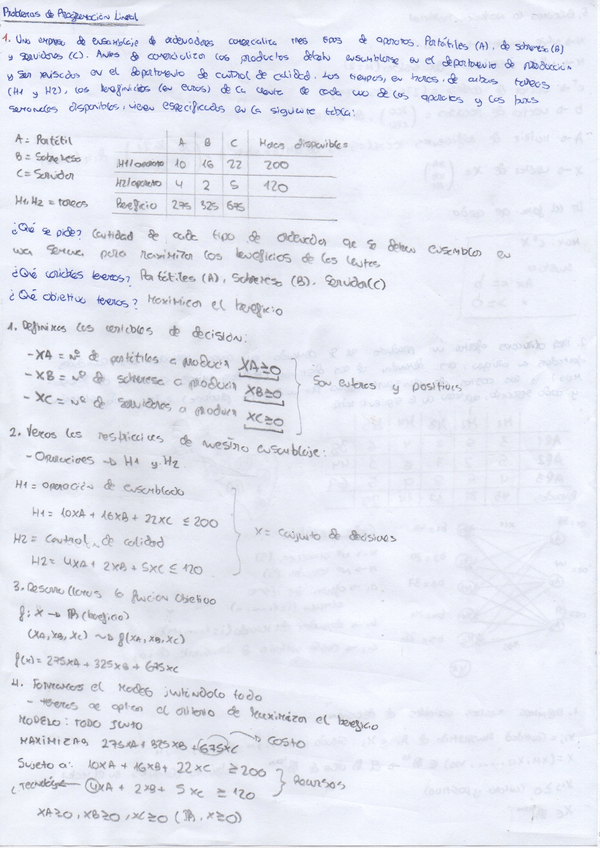 Problemas de Programación Lineal
1. Una empresa de ensamblaje de ordenadores comercializa tres tipos de aparatos. Portátiles (A), de sobremesa (B)
y servidores (C). Antes de comercializar los productos deben ensamblarse en el departamento de producción
y ser revisados en el departamento de control de calidad. Los tiempos, en horas, de ambas tareas
(H1 y H2), los beneficios (en euros) de la venta de cada uno de los aparatos y las horas
semanales disponibles, vienen especificados en la siguiente tabla:
A = Portátil
B = Sobremesa
C = Servidor
H1, H2 = tareas
A B C Horas disponibles
H1/aparato 10 16 22 200
H2/aparato 4 2 5 120
Beneficio 275 325 675
¿Qué se pide? Cantidad de cada tipo de ordenador que se deben ensamblar en
una semana para maximizar los beneficios de las ventas
¿Qué variables tenemos? Portátiles (A), Sobremesa (B), Servidor (C)
¿Qué objetivo tenemos? Maximizar el beneficio
1. Definimos las variables de decisión:
- XA = nº de portátiles a producir XA≥0
- XB = nº de sobremesa a producir XB≥0
- XC = nº de servidores a producir XC≥0
Son enteros y positivos
2. Vemos las restricciones de nuestro ensamblaje:
- Operaciones → H1 y H2
H1 = operación de ensamblado
H1 = 10XA + 16XB + 22XC ≤ 200
H2 = Control de calidad
H2 = 4XA + 2XB + 5XC ≤ 120
X = Conjunto de decisiones
3. Desarrollamos la función objetivo
f: X → R (beneficio)
(XA, XB, XC) ↝ f(XA, XB, XC)
f(x) = 275XA + 325XB + 675XC
4. Formamos el modelo juntándolo todo
- tenemos se aplica el criterio de maximizar el beneficio
MODELO: TODO JUNTO
MAXIMIZAR 275XA + 325XB + 675XC → COSTO
Sujeto a: 10XA + 16XB + 22XC ≥ 200
4XA + 2XB + 5XC ≥ 120
Recursos
XA≥0, XB≥0, XC≥0 (R, X≥0)